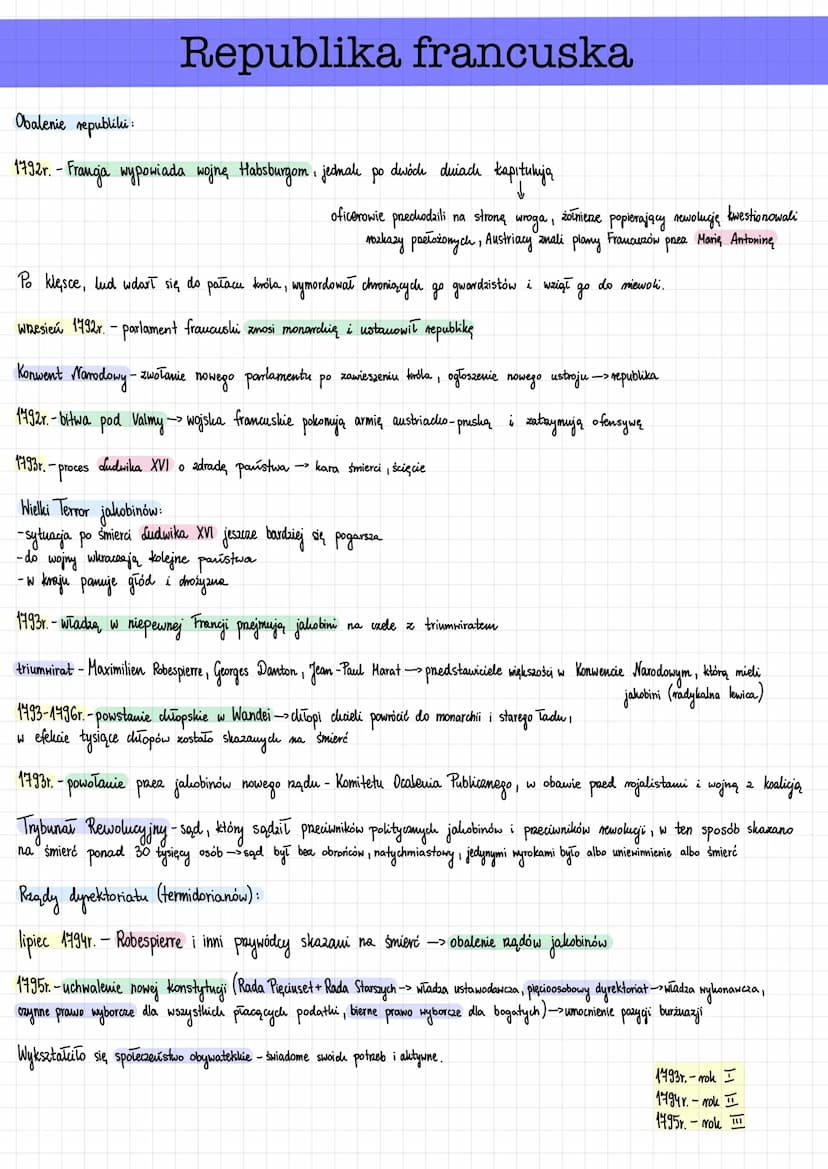 Republika francuska
Obalenie republiki:
1792r. - Francja wypowiada wojnę Habsburgom, jednak po dwóch dniach kapitulują
↓
oficerowie przechodzili na stronę wroga, żołnierze popierający rewolucję kwestionowali
rozkazy przełożonych, Austriacy znali plany Francuzów przez Marię Antoninę
Po klęsce, lud wdarł się do pałacu króla, wymordował chroniących go gwardzistów i wziął go do niewoli.
wrzesień 1792r. - parlament francuski znosi monarchię i ustanowił republikę
Konwent Narodowy - zwołanie nowego parlamentu po zawieszeniu króla, ogłoszenie nowego ustroju → republika
1792r. - bitwa pod Valmy → wojska francuskie pokonują armię austriacko-pruską i zatrzymują ofensywę
1793r. - proces Ludwika XVI o zdradę państwa → kara śmierci, ścięcie
Wielki Terror jakobinów:
- sytuacja po śmierci Ludwika XVI jeszcze bardziej się pogarsza
- do wojny wkraczają kolejne państwa
- w kraju panuje głód i drożyzna
1793r. - władzę w niepewnej Francji przejmują jakobini na czele z triumwiratem
triumwirat - Maximilien Robespierre, Georges Danton, Jean-Paul Marat → przedstawiciele większości w Konwencie Narodowym, którą mieli
jakobini (radykalna lewica)
1793-1796r. - powstanie chłopskie w Wandei → chłopi chcieli powrócić do monarchii i starego ładu,
w efekcie tysiące chłopów zostało skazanych na śmierć
1793r. - powołanie przez jakobinów nowego rządu - Komitetu Ocalenia Publicznego, w obawie przed rojalistami i wojną z koalicją
Trybunał Rewolucyjny - sąd, który sądził przeciwników politycznych jakobinów i przeciwników rewolucji, w ten sposób skazano
na śmierć ponad 30 tysięcy osób → sąd był bez obrońców, natychmiastowy, jedynymi wyrokami było albo uniewinnienie albo śmierć
Rządy dyrektoriatu (termidorianów):
lipiec 1794r. - Robespierre i inni przywódcy skazani na śmierć → obalenie rządów jakobinów
1795r. - uchwalenie nowej konstytucji (Rada Pięciuset + Rada Starszych → władza ustawodawcza, pięcioosobowy dyrektoriat → władza wykonawcza,
czynne prawo wyborcze dla wszystkich płacących podatki, bierne prawo wyborcze dla bogatych) → umocnienie pozycji burżuazji
Wykształciło się społeczeństwo obywatelskie - świadome swoich potrzeb i aktywne.
1793r. - rok I
1794r. - rok II
1795r. - rok III